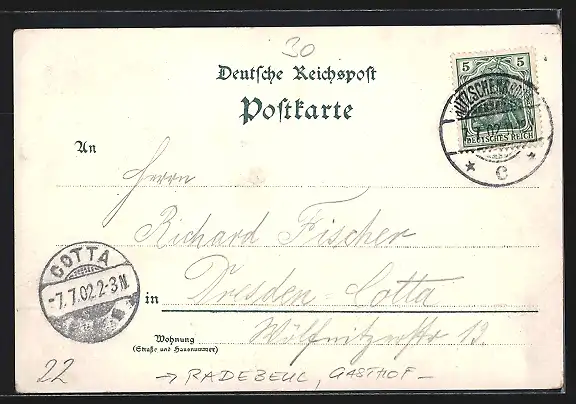 30
Deutsche Reichspost
Postkarte
5 5
DEUTSCHES REICH
7.7.02
* C *
An
Herrn
Richard Fischer
COTTA
-7.7.02.2-3N
in Dresden-Cotta
Wohnung
(Straße und Hausnummer)
Wölfnitzerstr 13.
22
→ RADEBEUL, GASTHOF -